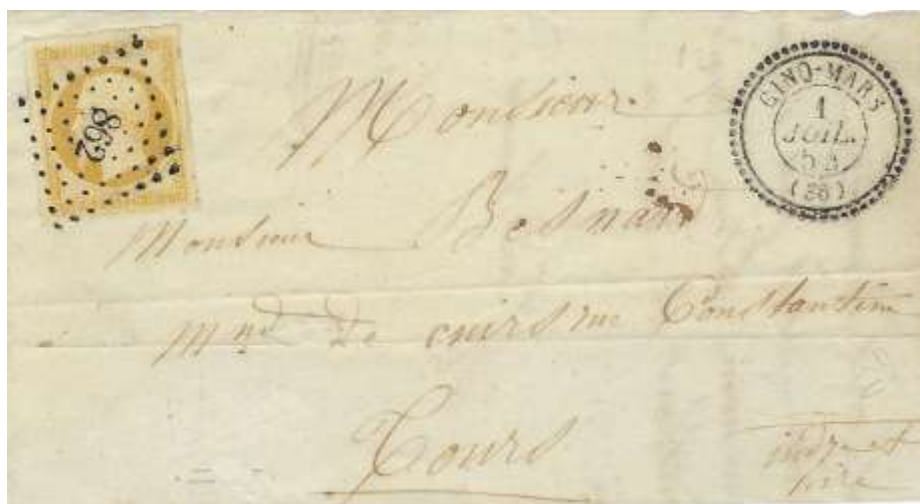 862
CINQ-MARS
1
JUIL.
54
(36)
Monsieur
Monsieur Besnard
Mnd De cuirs rue Constantine
Tours
indre et
loire